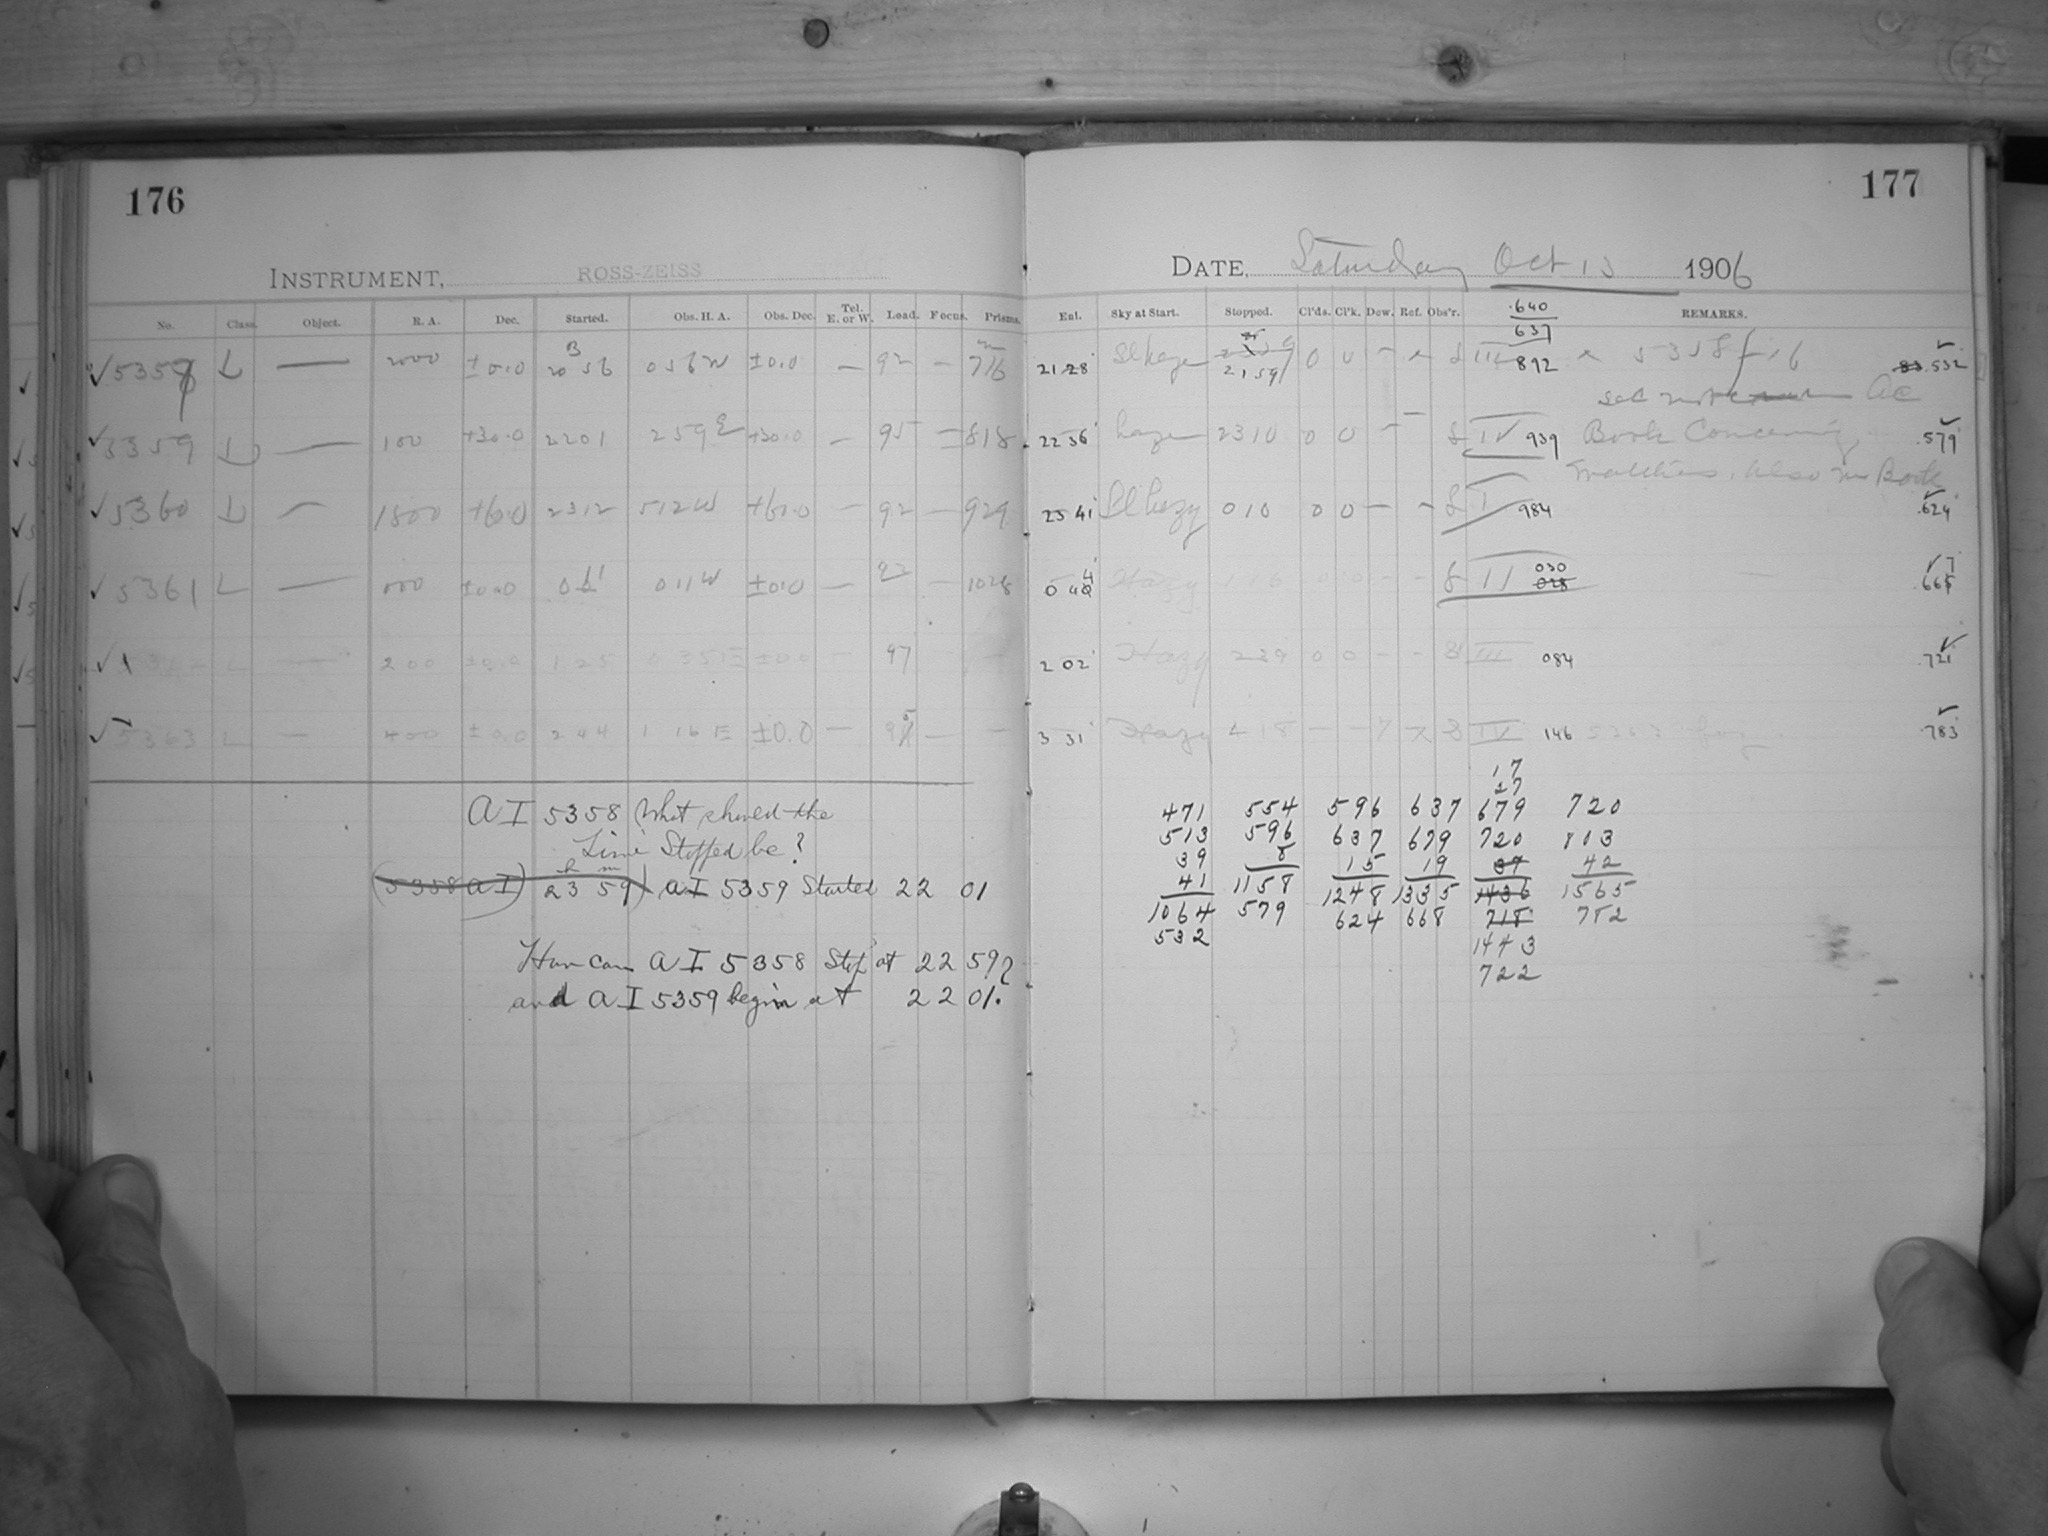 176
177
INSTRUMENT, ROSS-ZEISS
DATE, Saturday Oct 13 1906
No. Class. Object. R. A. Dec. Started. Obs. H. A. Obs. Dec. Tel. E. or W. Load. Focus. Prisms.
Ent. Sky at Start. Stopped. Cl'ds. Cl'k. Dew. Ref. Obs'r. .640 637 REMARKS.
✓5358 L — 2000 ±0.0 20 56 0 56 W ±0.0 — 92 — 716 21 28 Sl hazy 21 59 0 0 — × III 892 × 5358 f 16 .532
see note Ac
✓5359 L 100 +30.0 2201 259 E +30.0 — 95 — 818 22 36 hazy 2310 0 0 — IV 939 Book Concerning .579
matters. Also in Book
✓5360 L — 1800 +60.0 2312 512 W +60.0 — 92 — 929 23 41 Sl hazy 010 0 0 — — I 984 .624
✓5361 L — 000 ±0.0 011 W ±0.0 — — 1028 0 4 Hazy 0 0 — — II 030 .667
L — 200 ±0.0 125 0 35 E ±0.0 — 97 2 02 Hazy 239 0 0 — — III 084 .721
✓5363 L — 400 ±0.0 244 1 16 E ±0.0 — — — 3 31 Hazy 418 — — 7 × IV 146 5363 fog .783
AI 5358 What should the
Time Stopped be?
(5358 AI) 23h 59m) AI 5359 Started 22 01
How can AI 5358 Stop at 22 59?
and AI 5359 begin at 22 01.
17
27
471 554 596 637 679 720
513 596 637 679 720 803
39 8 15 19 37 42
41 1158 1248 1335 1436 1565
1064 579 624 668 718 782
532 1443
722